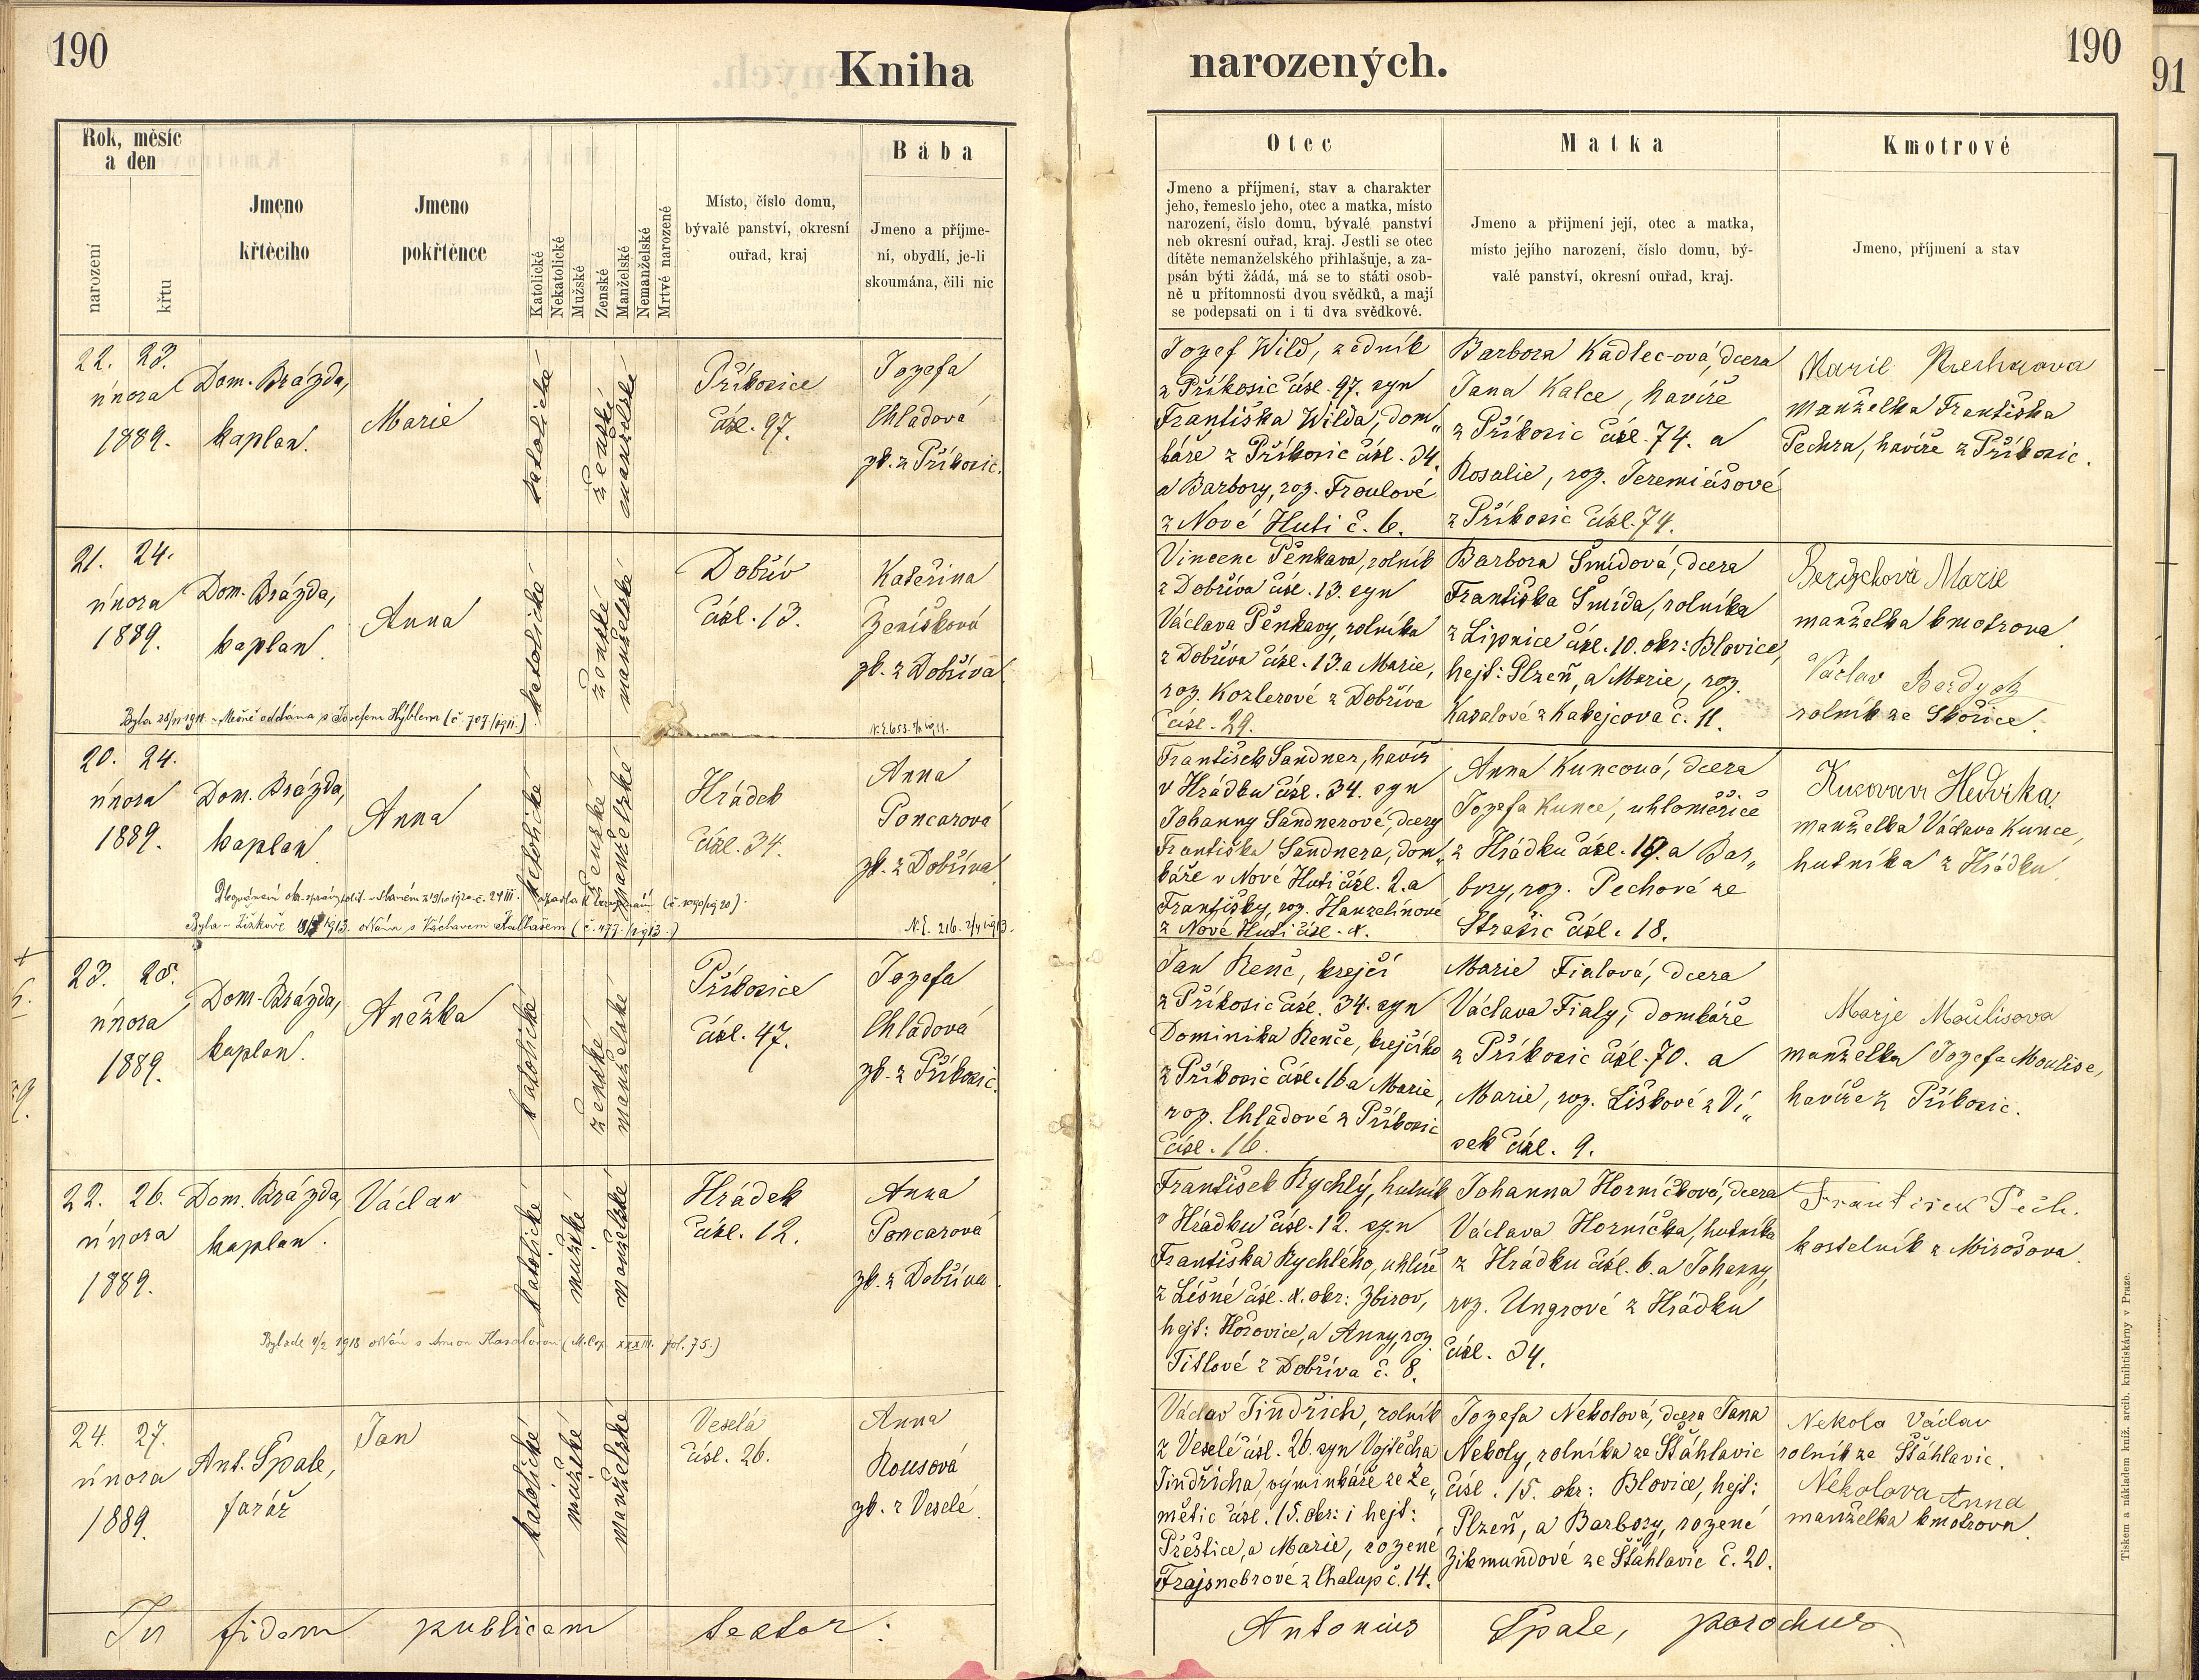 190
Kniha
narozených.
190
91
Rok, měsíc
a den
narození
křtu
Jmeno
křtěcího
Jmeno
pokřtěnce
Katolické
Nekatolické
Mužské
Ženské
Manželské
Nemanželské
Mrtvě narozené
Místo, číslo domu,
bývalé panství, okresní
ouřad, kraj
Bába
Jmeno a příjme-
ní, obydlí, je-li
skoumána, čili nic
Otec
Jmeno a příjmení, stav a charakter
jeho, řemeslo jeho, otec a matka, místo
narození, číslo domu, bývalé panství
neb okresní ouřad, kraj. Jestli se otec
dítěte nemanželského přihlašuje, a za-
psán býti žádá, má se to státi osob-
ně u přítomnosti dvou svědků, a mají
se podepsati on i ti dva svědkové.
Matka
Jmeno a přijmení její, otec a matka,
místo jejího narození, číslo domu, bý-
valé panství, okresní ouřad, kraj.
Kmotrové
Jmeno, příjmení a stav
22. 23.
února
1889.
Dom. Brázda,
kaplan.
Marie
katolické
ženské
manželské
Příkosice
čísl. 97.
Jozefa
Chladová
zk. z Příkosic.
Jozef Wild, zedník
z Příkosic čísl. 97. syn
Františka Wilda, dom„
káře z Příkosic čísl. 34.
a Barbory, roz. Froulové
z Nové Huti č. 6.
Barbora Kadlec-ová, dcera
Jana Kalce, havíře
z Příkosic čísl. 74. a
Rosalie, roz. Jeremiášové
z Příkosic čísl. 74.
Marie
manželka Františka
Pechra, havíře z Příkosic.
21. 24.
února
1889.
Dom. Brázda,
kaplan.
Anna
katolické
ženské
manželské
Dobřív
čísl. 13.
Kateřina
Zeníšková
zk. z Dobříva.
Byla 28/11 1911 v Mešně oddána s Josefem Hýblem (č. 707/1911.)
N. E. 653.
Vincenc Pěnkava, rolník
z Dobříva čísl. 13. syn
Václava Pěnkavy, rolníka
z Dobříva čísl. 13. a Marie,
roz. Kozlerové z Dobříva
čísl. 29.
Barbora Šmídová, dcera
Františka Šmída, rolníka
z Lipnice čísl. 10. okr: Blovice,
hejt: Plzeň, a Marie, roz.
Kasalové z Kakejcova č. 11.
Berdychová Marie
manželka kmotrova
Václav Berdych
rolník ze Skořice.
20. 24.
února
1889.
Dom. Brázda,
kaplan.
Anna
katolické
ženské
manželské
Hrádek
čísl. 34.
Anna
Poncarová
zk. z Dobříva.
Byla v Žižkově 1913. oddána s Václavem (č. 477./1913.)
N. E. 216.
František Sandner, havíř
v Hrádku čísl. 34. syn
Johanny Sandnerové, dcery
Františka Sandnera, dom„
káře v Nové Huti čísl. 2. a
Františky, roz. Hanzelínové
z Nové Huti čísl. 4.
Anna Kuncová, dcera
Jozefa Kunce, uhloměřiče
z Hrádku čísl. 19. a Bar„
bory, roz. Pechové ze
Strašic čísl. 18.
Hedvika,
manželka Václava Kunce,
hutníka z Hrádku.
23. 25.
února
1889.
Dom. Brázda,
kaplan.
Anežka
katolické
ženské
manželské
Příkosice
čísl. 47.
Jozefa
Chladová
zk. z Příkosic.
Jan Renč, krejčí
z Příkosic čísl. 34. syn
Dominika Renče, krejčího
z Příkosic čísl. 16 a Marie,
roz. Chladové z Příkosic
čísl. 16.
Marie Fialová, dcera
Václava Fialy, domkáře
z Příkosic čísl. 70. a
Marie, roz. Liškové z Ví„
sek čísl. 9.
Marje Moulisova
manželka Jozefa Moulise,
havíře z Příkosic.
22. 26.
února
1889.
Dom. Brázda,
kaplan.
Václav
katolické
mužské
manželské
Hrádek
čísl. 12.
Anna
Poncarová
zk. z Dobříva.
Byl zde 1918 oddán s Annou Kasalovou (M. cop. XXXIII. fol. 75.)
František Rychlý, hutník
v Hrádku čísl. 12. syn
Františka Rychlého, uhlíře
z Líšné čísl. 4. okr: Zbirov,
hejt: Hořovice, a Anny, roz.
Titlové z Dobříva č. 8.
Johanna Horníčková, dcera
Václava Horníčka, hutníka
z Hrádku čísl. 6. a Johanny,
roz. Ungrové z Hrádku
čísl. 34.
František Pech.
kostelník z Mirošova.
24. 27.
února
1889.
Ant. Špale,
farář
Jan
katolické
mužské
manželské
Veselá
čísl. 26.
Anna
Rousová
zk. z Veselé.
Václav Jindřich, rolník
z Veselé čísl. 26. syn Vojtěcha
Jindřicha, výminkáře ze Že„
mětic čísl. 15. okr: i hejt:
Přeštice, a Marie, rozené
Frajsnebrové z Chalup č. 14.
Jozefa Nekolová, dcera Jana
Nekoly, rolníka ze Šťáhlavic
čísl. 15. okr: Blovice, hejt:
Plzeň, a Barbory, rozené
Zikmundové ze Šťáhlavic č. 20.
Nekola Václav
rolník ze Šťáhlavic.
Nekolova Anna
manželka kmotrova.
In fidem publicam testor:
Antonius Špale, parochus.
Tiskem a nákladem kníž. arcib. knihtiskárny v Praze.